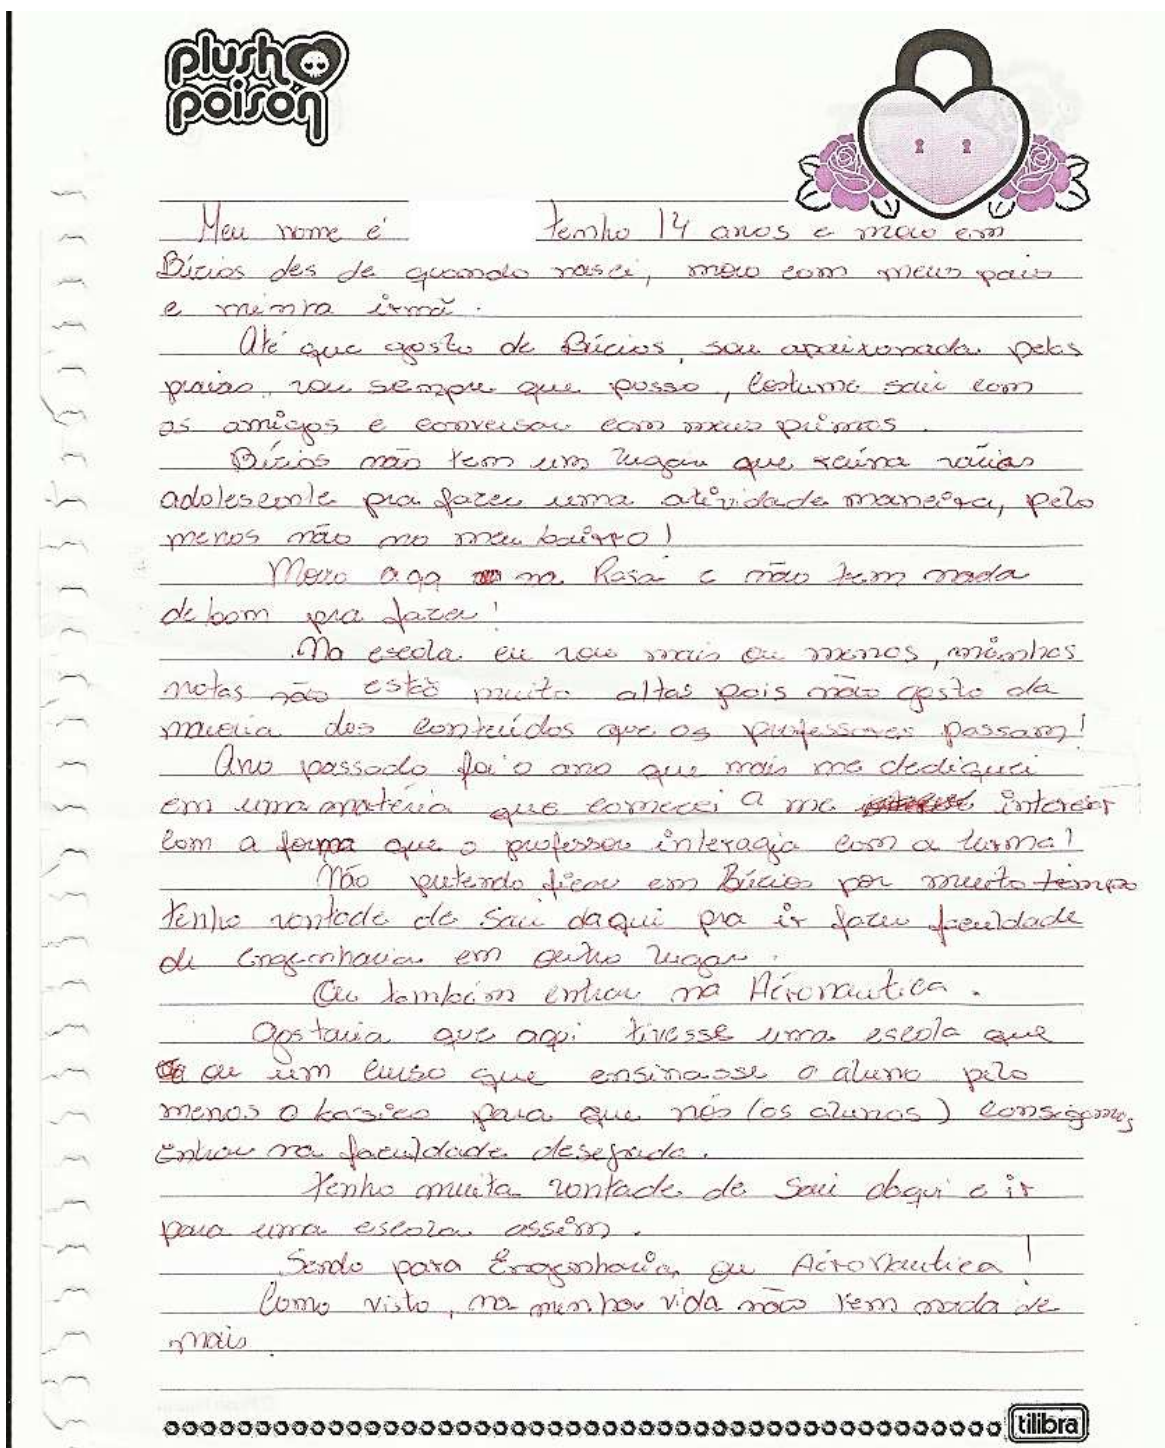 plush
poison
Meu nome é tenho 14 anos e moro em
Búzios des de quando nasci, moro com meus pais
e minha irmã.
Até que gosto de Búzios, sou apaixonada pelas
praias, vou sempre que posso, Costumo sair com
os amigos e conversar com meus primos.
Búzios não tem um lugar que reúna vários
adolescente pra fazer uma atividade maneira, pelo
menos não no meu bairro!
Moro aqq na Rasa e não tem nada
de bom pra fazer!
Na escola eu vou mais ou menos, minhas
notas não estão muito altas pois não gosto da
maioria dos conteúdos que os professores passam!
Ano passado foi o ano que mais me dediquei
em uma matéria que comecei a me interesar
com a forma que o professor interagia com a turma!
Não pretendo ficar em Búzios por muito tempo
tenho vontade de sair daqui pra ir fazer faculdade
de Engenharia em outro lugar.
Ou também entrar na Aéronautica.
Gostaria que aqui tivesse uma escola que
ou um curso que ensinasse o aluno pelo
menos o básico para que nós (os alunos) consigamos
entrar na faculdade desejada.
Tenho muita vontade de sair daqui e ir
para uma escola assim.
Sendo para Engenharia, ou Aéronautica!
Como visto, na minha vida não tem nada de
mais.
tilibra